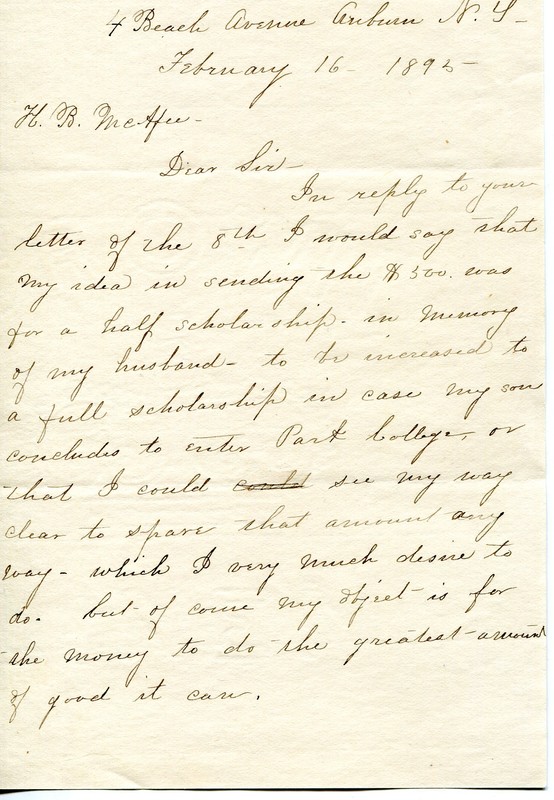 4 Beach Avenue Auburn N. Y-
February 16 - 1895-
H. B. McAfee-
Dear Sir-
In reply to your
letter of the 8th I would say that
my idea in sending the $500. was
for a half scholarship- in memory
of my husband- to be increased to
a full scholarship in case my son
concludes to enter Park College, or
that I could could see my way
clear to spare that amount any
way- which I very much desire to
do. but of course my object is for
the money to do the greatest amount
of good it can.